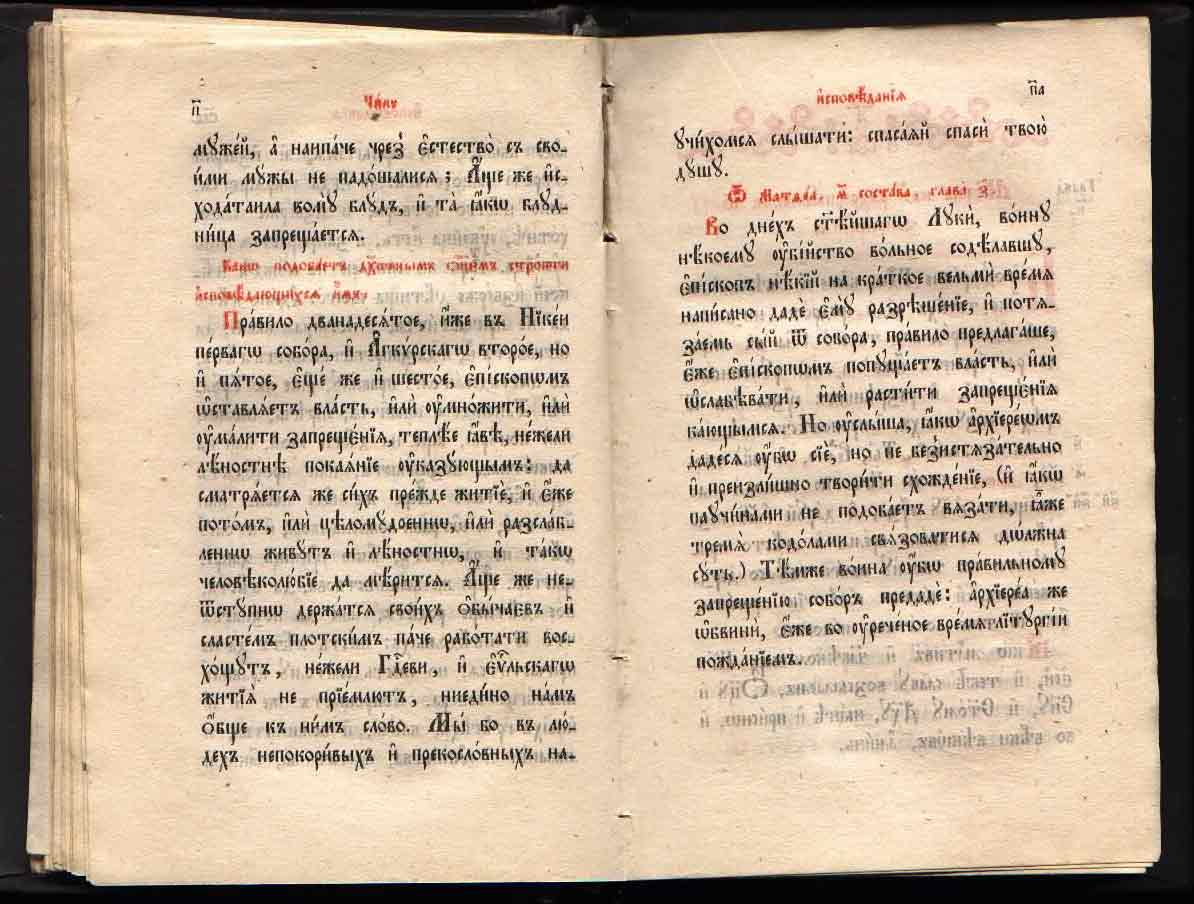 п҃
Чи́нъ
муже́й, а҆ наипа́че чрез̾ є҆стество̀ съ сво-
и́ми мꙋ́жы не падо́шалися; А҆́ще же и҆с-
хода́таила комꙋ̀ блꙋ́дъ, и҆ та̀ ꙗ҆́кѡ блꙋд-
ни́ца запреща́ется.
Ка́кѡ подоба́етъ дх҃о́внымъ ѻ҆тц҃є́мъ стро́ити
и҆сповѣ́дающихся и҆̀мъ.
Пра́вило двана́десѧтое, и҆́же въ Нїке́и
пе́рвагѡ собо́ра, и҆ А҆гкѵ́рскагѡ второ́е, но
и҆ пѧ́тое, є҆ще́ же и҆ шесто́е, є҆пі́скопѡмъ
ѡ҆ставлѧ́етъ вла́сть, и҆лѝ ᲂу҆мно́жити, и҆лѝ
ᲂу҆ма́лити запреще́нїѧ, теплѣ́е ꙗ҆́вѣ, не́жели
лѣ́ностнѣ покаѧ́нїе ᲂу҆ка́зующымъ: да
сматрѧ́ется же си́хъ пре́жде житїѐ, и҆ є҆́же
пото́мъ, и҆лѝ цѣломꙋ́дреннѡ, и҆лѝ разсла́б-
леннѡ живꙋ́тъ и҆ лѣ́ностнѡ, и҆ та́кѡ
человѣколю́бїе да мѣ́рится. А҆́ще же не-
ѿстꙋ́пнѡ держа́тся свои́хъ ѻ҆бы́чаєвъ и҆
сласте́мъ плотски́мъ па́че рабо́тати вос-
хо́щꙋтъ, не́жели Гдⷭ҇еви, и҆ є҆ѵⷢ҇льскагѡ
житїѧ̀ не прїе́млютъ, ниеди́но на́мъ
ѻ҆́бще къ ни́мъ сло́во. Мы́ бо въ лю́-
дехъ непокори́выхъ и҆ прекосло́вныхъ на-
и҆сповѣ́данїѧ
п҃а
ᲂучи́хомся слы́шати: спаса́ѧй спасѝ твою̀
дꙋ́шꙋ.
Ѿ Матѳе́а, ѿ соста́ва, глава̀ з҃.
Во дне́хъ ст҃ѣ́йшагѡ Лꙋкѝ, во́инꙋ
нѣ́коемꙋ ᲂу҆бі́йство во́льное содѣ́лавшꙋ,
є҆пі́скопъ нѣ́кїй на кра́ткое вельмѝ вре́мѧ
напи́сано дадѐ є҆мꙋ̀ разрѣше́нїе, и҆ потѧ-
за́емь сы́й ѿ собо́ра, пра́вило предлага́ше,
є҆́же є҆пі́скопѡмъ попꙋща́етъ вла́сть, и҆лѝ
ѡ҆слабѣва́ти, и҆лѝ расти́ти запреще́нїѧ
ка́ющымсѧ. Но ᲂу҆слы́ша, ꙗ҆́кѡ а҆рхїере́ѡмъ
даде́сѧ ᲂу҆́бѡ сїѐ, но не безистѧза́тельно
и҆ преизли́шно твори́ти схожде́нїе, (и҆ ꙗ҆́кѡ
паꙋчи́нами не подоба́етъ вѧза́ти, ꙗ҆̀же
тремѧ̀ кодо́лами свѧзова́тисѧ дѡлжна̀
сꙋ́ть.) Тѣ́мже во́ина ᲂу҆́бѡ пра́вильномꙋ
запреще́нїю собо́ръ предадѐ: а҆рхїере́а же
ѡ҆бвинѝ, є҆́же во ᲂу҆рече́ное вре́мѧ лїтꙋргі́й
пожда́нїемъ.